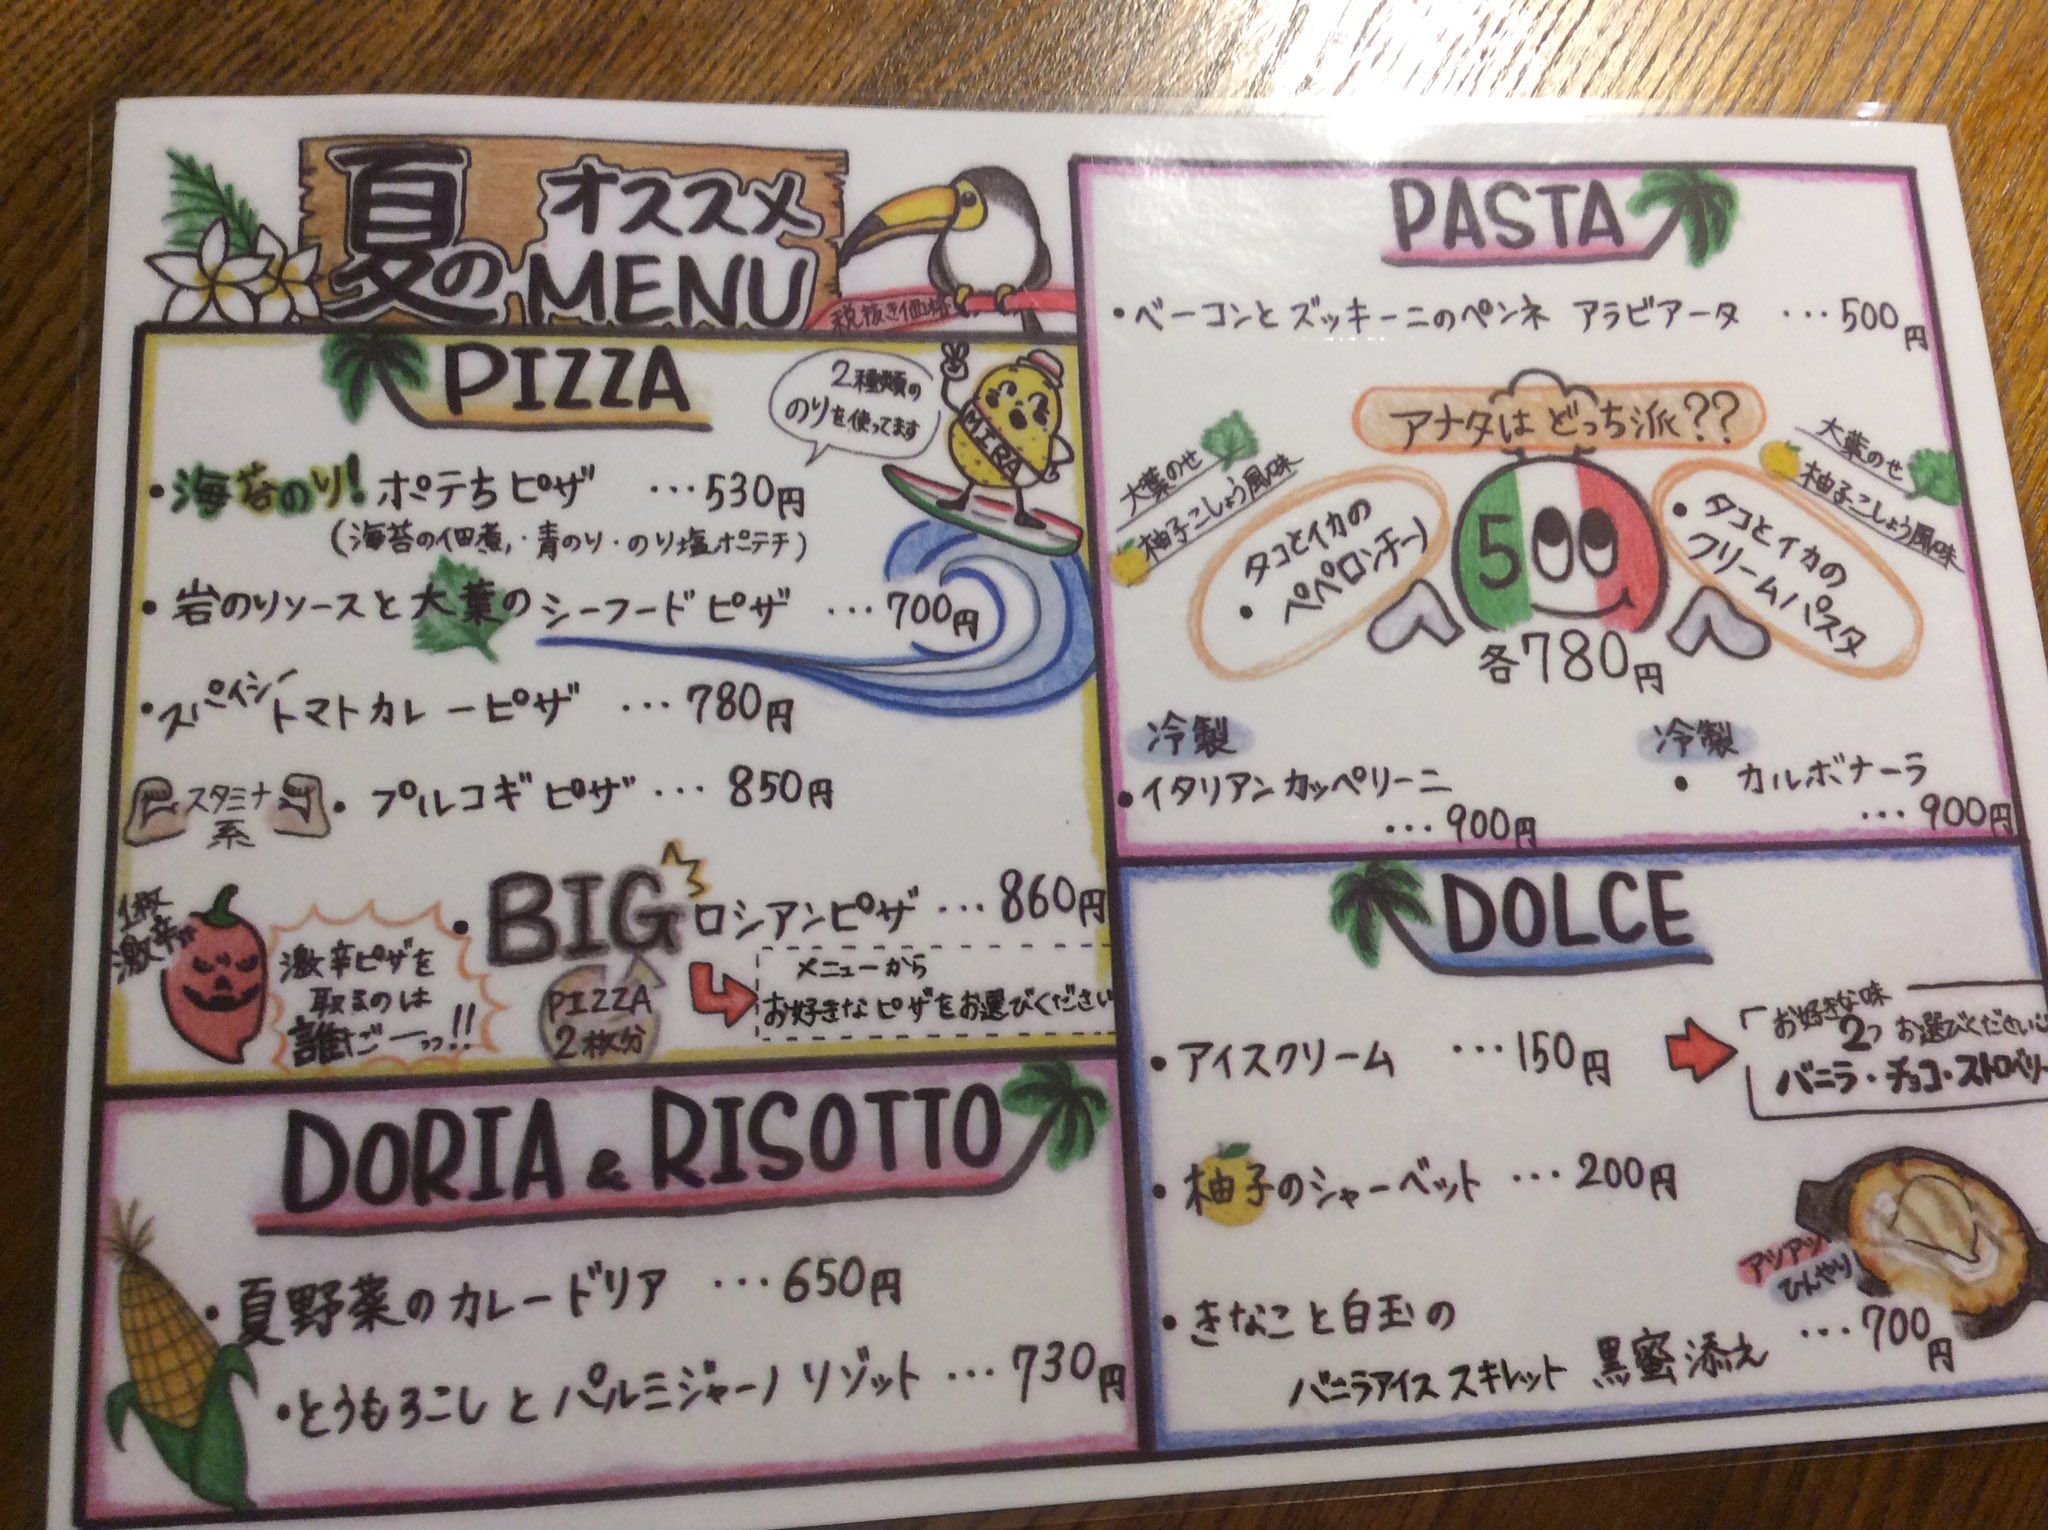 夏の オススメ
MENU
税抜き価格
PIZZA
2種類の
のりを使ってます
MIRA
・海苔のり!ポテちピザ …530円
(海苔の佃煮・青のり・のり塩ポテチ)
・岩のりソースと大葉のシーフードピザ …700円
・スパイシートマトカレーピザ …780円
スタミナ
系
・プルコギピザ …850円
1枚
激辛
激辛ピザを
取るのは
誰だーっっ!!
・BIGロシアンピザ …860円
PIZZA
2枚分
メニューから
お好きなピザをお選びください
DORIA & RISOTTO
・夏野菜のカレードリア …650円
・とうもろこしとパルミジャーノリゾット …730円
PASTA
・ベーコンとズッキーニのペンネ アラビアータ …500円
アナタはどっち派??
大葉のせ
柚子こしょう風味
・タコとイカの
ペペロンチーノ
500
大葉のせ
柚子こしょう風味
・タコとイカの
クリームパスタ
各780円
冷製
・イタリアンカッペリーニ
…900円
冷製
・カルボナーラ
…900円
DOLCE
・アイスクリーム …150円
お好きな味
2つ お選びください
バニラ・チョコ・ストロベリー
・柚子のシャーベット …200円
アツアツ
ひんやり
・きなこと白玉の
バニラアイススキレット 黒蜜添え …700円